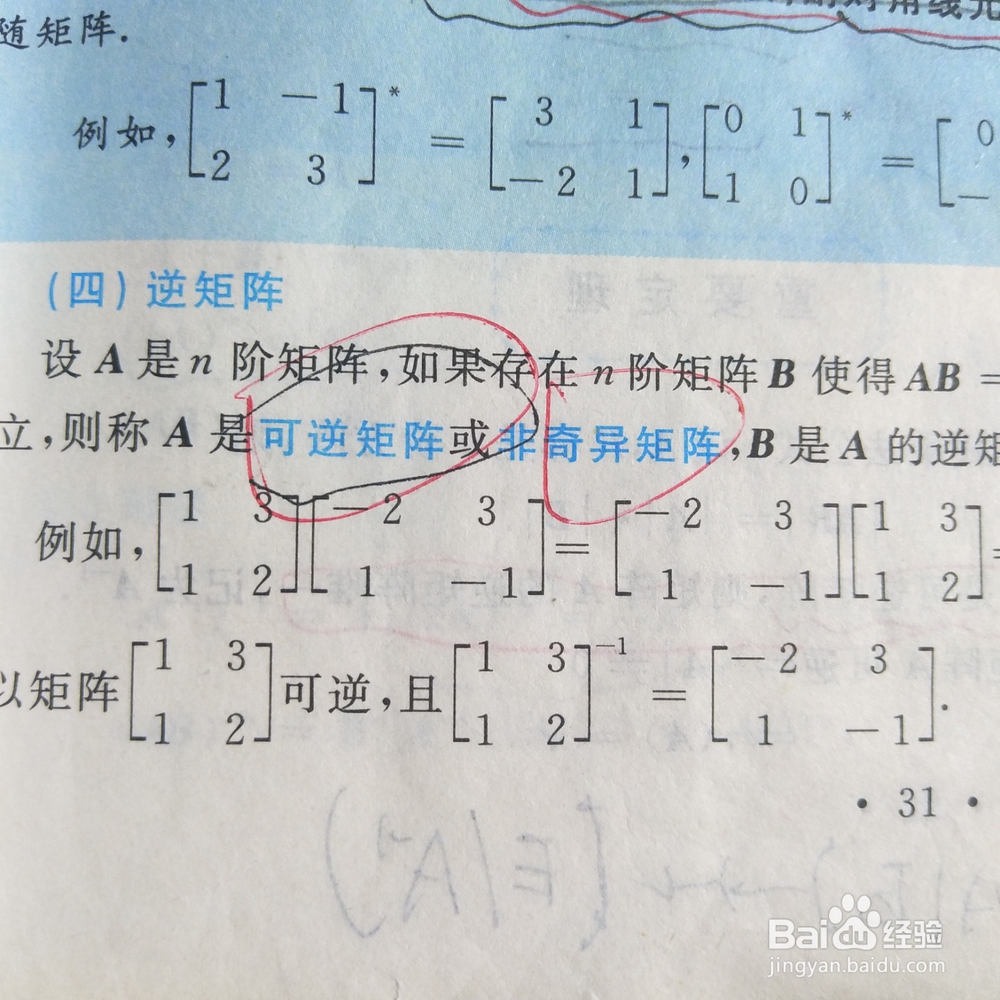 随矩阵.
例如,[1 -1; 2 3]* = [3 1; -2 1],[0 1; 1 0]* = [0
(四)逆矩阵
设 A 是 n 阶矩阵,如果存在 n 阶矩阵 B 使得 AB =
立,则称 A 是可逆矩阵或非奇异矩阵,B 是 A 的逆矩
例如,[1 3; 1 2][-2 3; 1 -1] = [-2 3; 1 -1][1 3; 1 2] =
以矩阵[1 3; 1 2]可逆,且[1 3; 1 2]⁻¹ = [-2 3; 1 -1].
· 31 ·
Baidu经验
jingyan.baidu.com